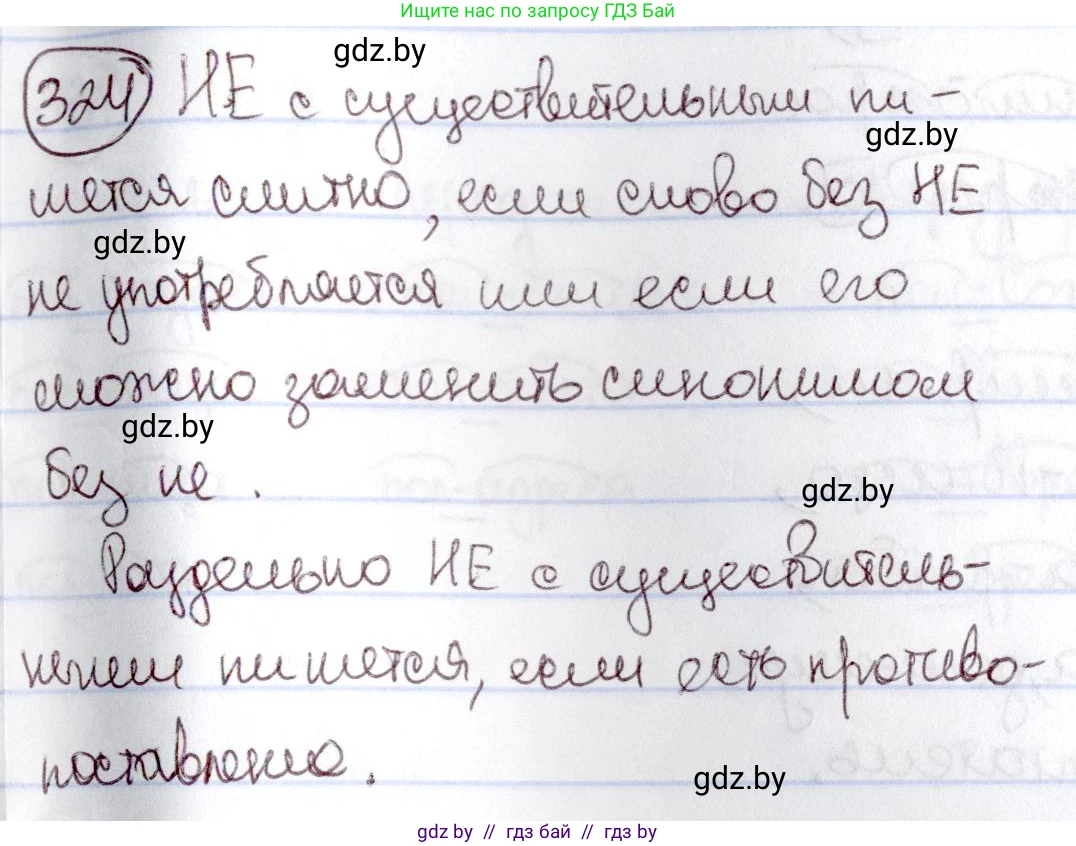 Ищите нас по запросу ГДЗ Бай
gdz.by
324 НЕ с существительными пи-
gdz.by
шется слитно, если слово без НЕ
gdz.by
не употребляется или если его
можно заменить синонимом
gdz.by
без не.
gdz.by
Раздельно НЕ с существитель-
ными пишется, если есть противо-
поставление.
gdz.by
gdz.by // гдз бай // гдз by